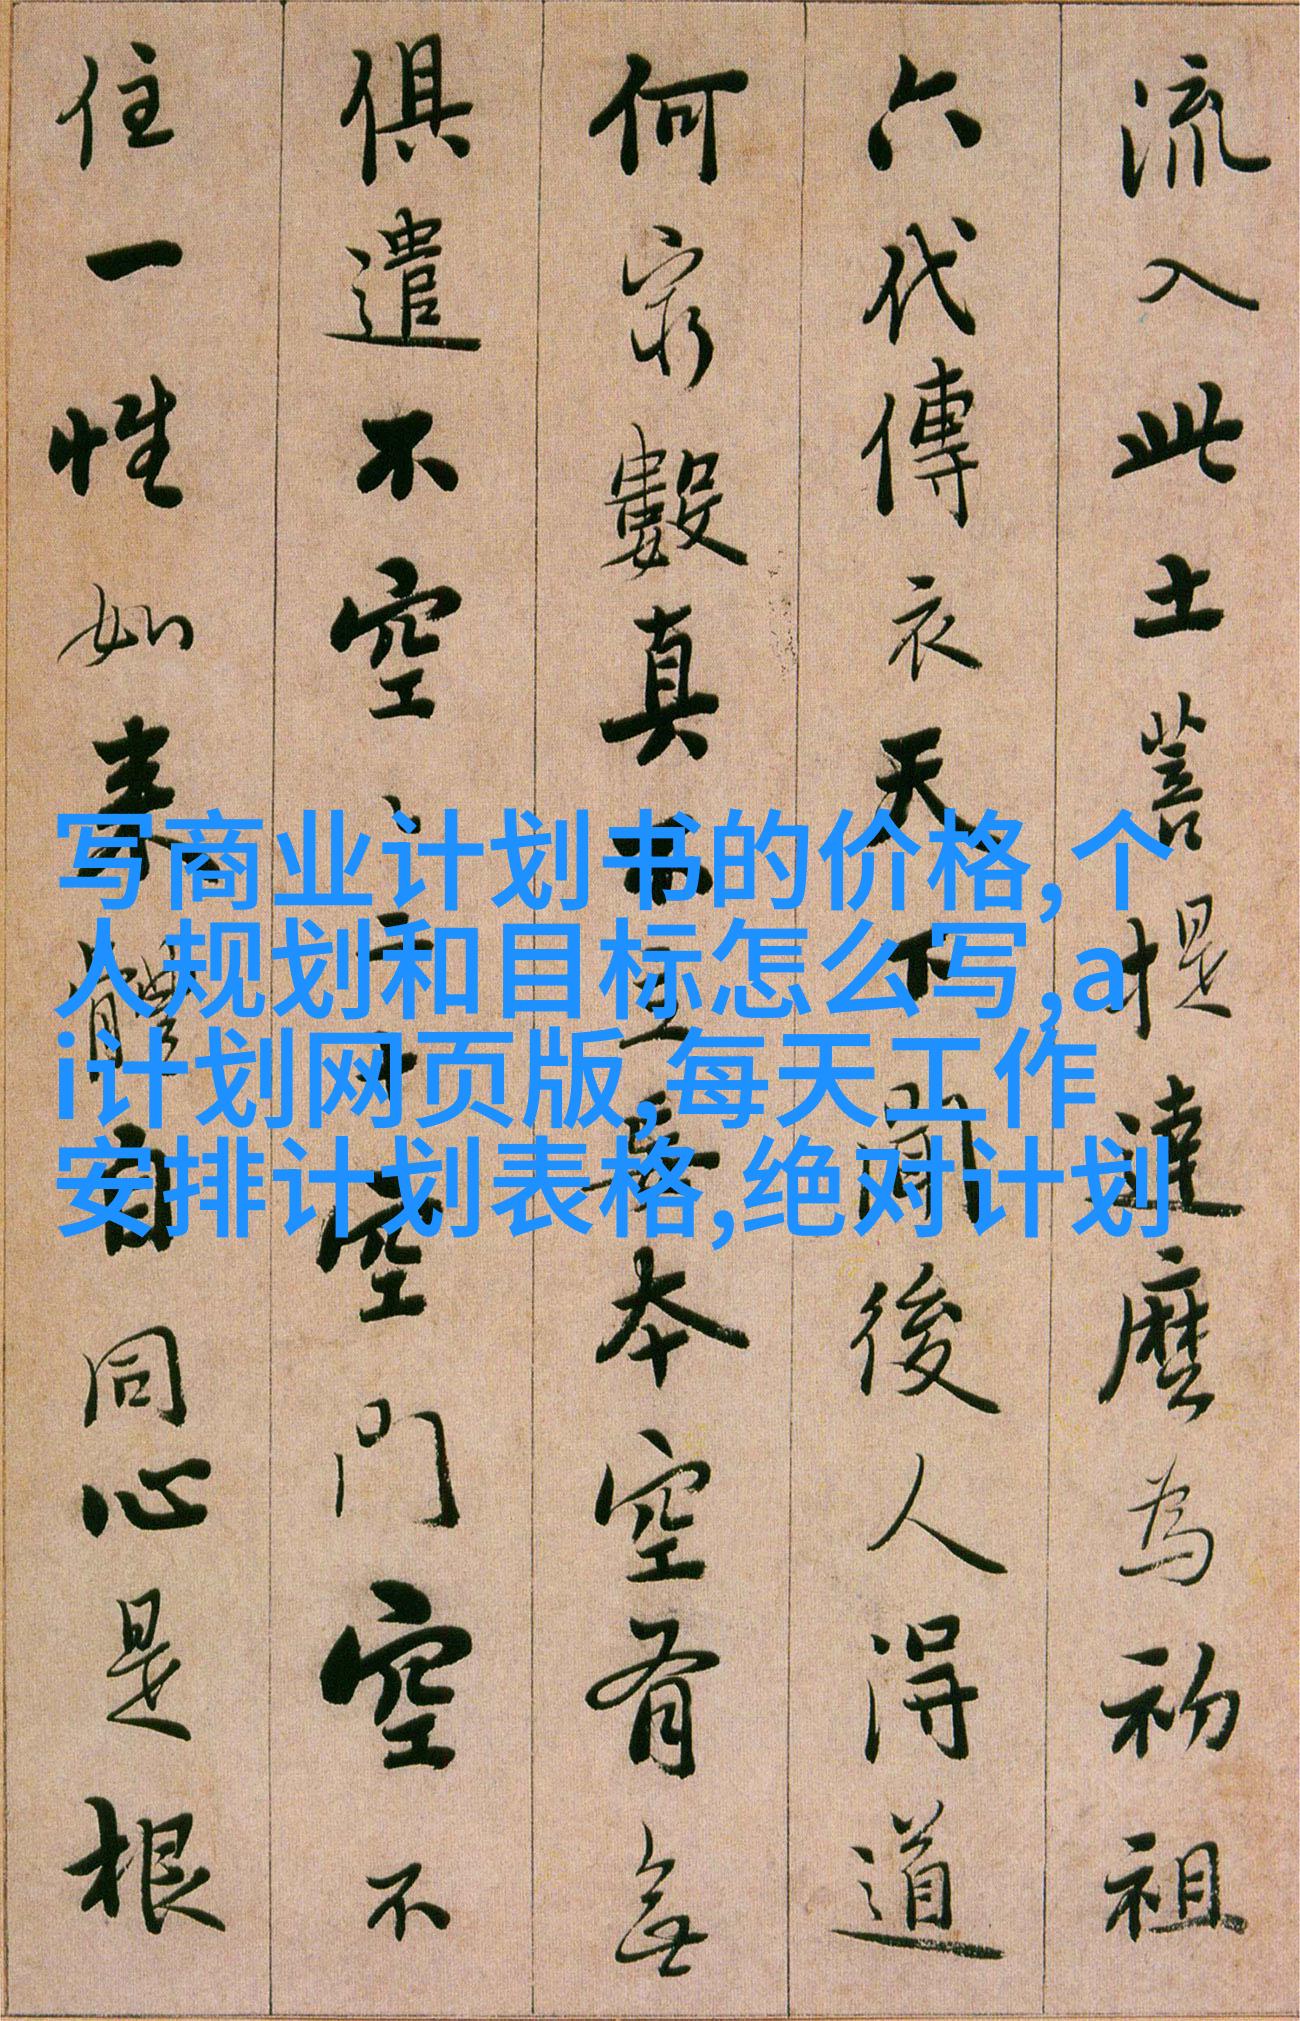 流入此土菩提達麼為初祖
六代傳衣天下聞後人得道
何窮數真不立妄本空有無
俱遣不空々二十空門空不
住一性如來體自同心是根
写商业计划书的价格,个
人规划和目标怎么写,a
i计划网页版,每天工作
安排计划表格,绝对计划